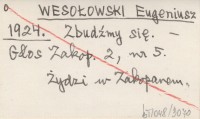 WESOŁOWSKI Eugeniusz
1924. Zbudźmy się. –
Głos Zakop. 2, nr 5.
Żydzi w Zakopanem.